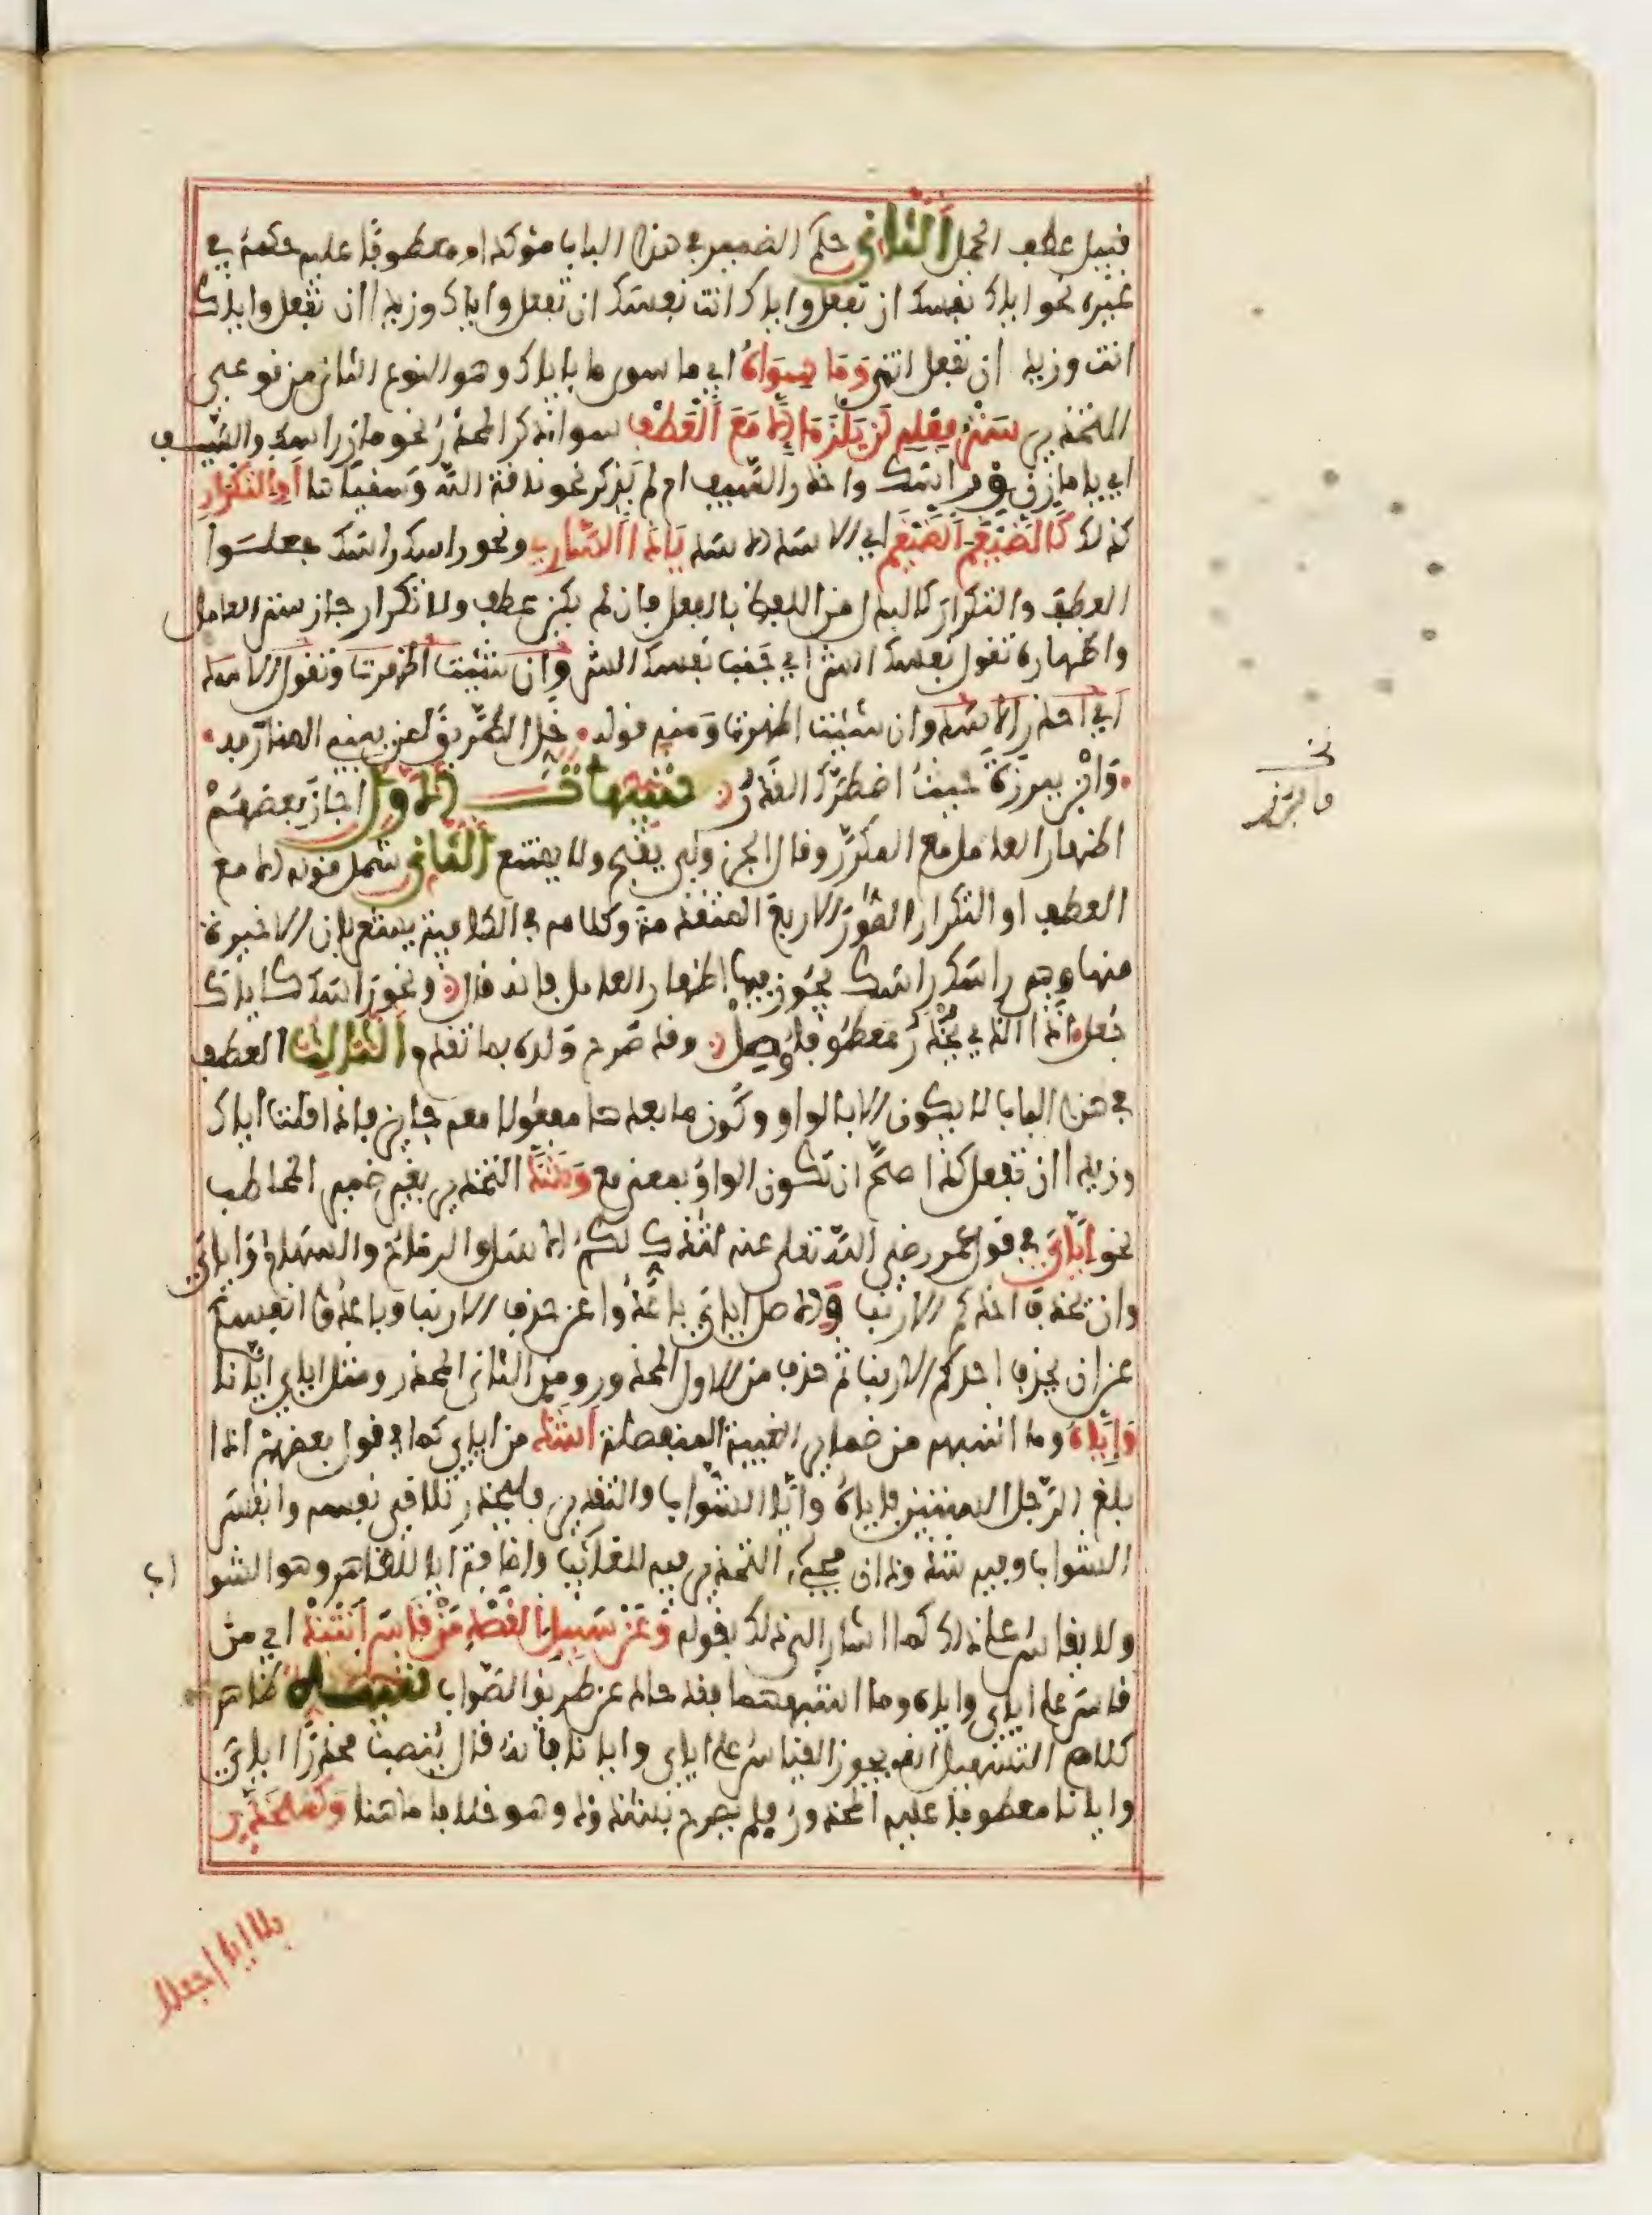 قبيل عطف الجمل الثاني حكم الضمير في هذا الباب مؤكدا او معطوفا عليه حكمه في
غيره نحو اياك نفسك ان تفعل واياك انت نفسك ان تفعل واياك وزيدا ان تفعل واياك
انت وزيد ان تفعل انتهى وَمَا سِوَاهُ اي ما سوى ما باياك وهو النوع الثاني من نوعي
التحذير سَتْرُ فِعْلِهِ لَنْ يَلْزَمَا إِلَّا مَعَ الْعَطْفِ سواء ذكر المحذر نحو ماز راسك والسيف
اي يا مازن ق راسك واحذر السيف ام لم يذكر نحو ناقة الله وسقياها أَوِ التَّكْرَارِ
كذلك كَالضَّيْغَمَ الضَّيْغَمَ اي الاسد الاسد يَا ذَا السَّارِي ونحو راسك راسك جعلوا
العطف والتكرار كالبدل من اللفظ بالفعل فان لم يكن عطف ولا تكرار جاز ستر العامل
واظهاره تقول نفسك الشر اي جنب نفسك الشر وان شئت اظهرت وتقول الاسد
اي احذر الاسد وان شئت اظهرت ومنه قوله خل الطريق لمن يبني المنار به
وابرز ببرزة حيث اضطرك القدر تنبيهات الاول اجاز بعضهم
اظهار العامل مع المكرر وقال الجزولي يقبح ولا يمتنع الثاني شمل قوله الا مع
العطف او التكرار الصور الاربع المتقدمة وكلامه في الكافية يشعر بان الاخيرة
منها وهي راسك راسك يجوز فيها اظهار العامل فانه قال ونحو راسك كاياك
جعل اذا الذي يحذر معطوفا وصل وقد صرح ولده بما تقدم الثالث العطف
في هذا الباب لا يكون الا بالواو وكون ما بعدها مفعولا معه جائز فاذا قلت اياك
وزيدا ان تفعل كذا صح ان تكون الواو بمعنى مع وَشَذَّ التحذير بغير ضمير المخاطب
نحو إِيَّايَ في قول عمر رضي الله تعلى عنه لتذك لكم الاسل والرماح والسهام واياي
وان يحذف احدكم الارنب والاصل اياي باعدوا عن حذف الارنب وباعدوا انفسكم
عن ان يحذف احدكم الارنب ثم حذف من الاول المحذور ومن الثاني المحذر ومثل اياي ايانا
وَإِيَّاهُ وما اشبهه من ضمائر الغيبة المنفصلة أَشَذّ من اياي كما في قول بعضهم اذا
بلغ الرجل الستين فاياه وايا الشواب والتقدير فليحذر تلاقي نفسه وانفس
الشواب وفيه شذوذان مجيء التحذير فيه للغائب واضافة ايا للظاهر وهو الشو اب
ولا يقاس على ذلك كما اشار الى ذلك بقوله وَعَنْ سَبِيلِ الْقَصْدِ مَنْ قَاسَ انْتَبَذْ اي من
قاس على اياي واياه وما اشبههما فقد حاد عن طريق الصواب تنبيه ظاهر
كلام التسهيل انه يجوز القياس على اياي وايانا فانه قال ينصب محذرا اياي
وايانا معطوفا عليه المحذور فلم يصرح بشذوذ وهو خلاف ما هنا وَكَمُحَذَّرٍ
بلا ايا اجعلا